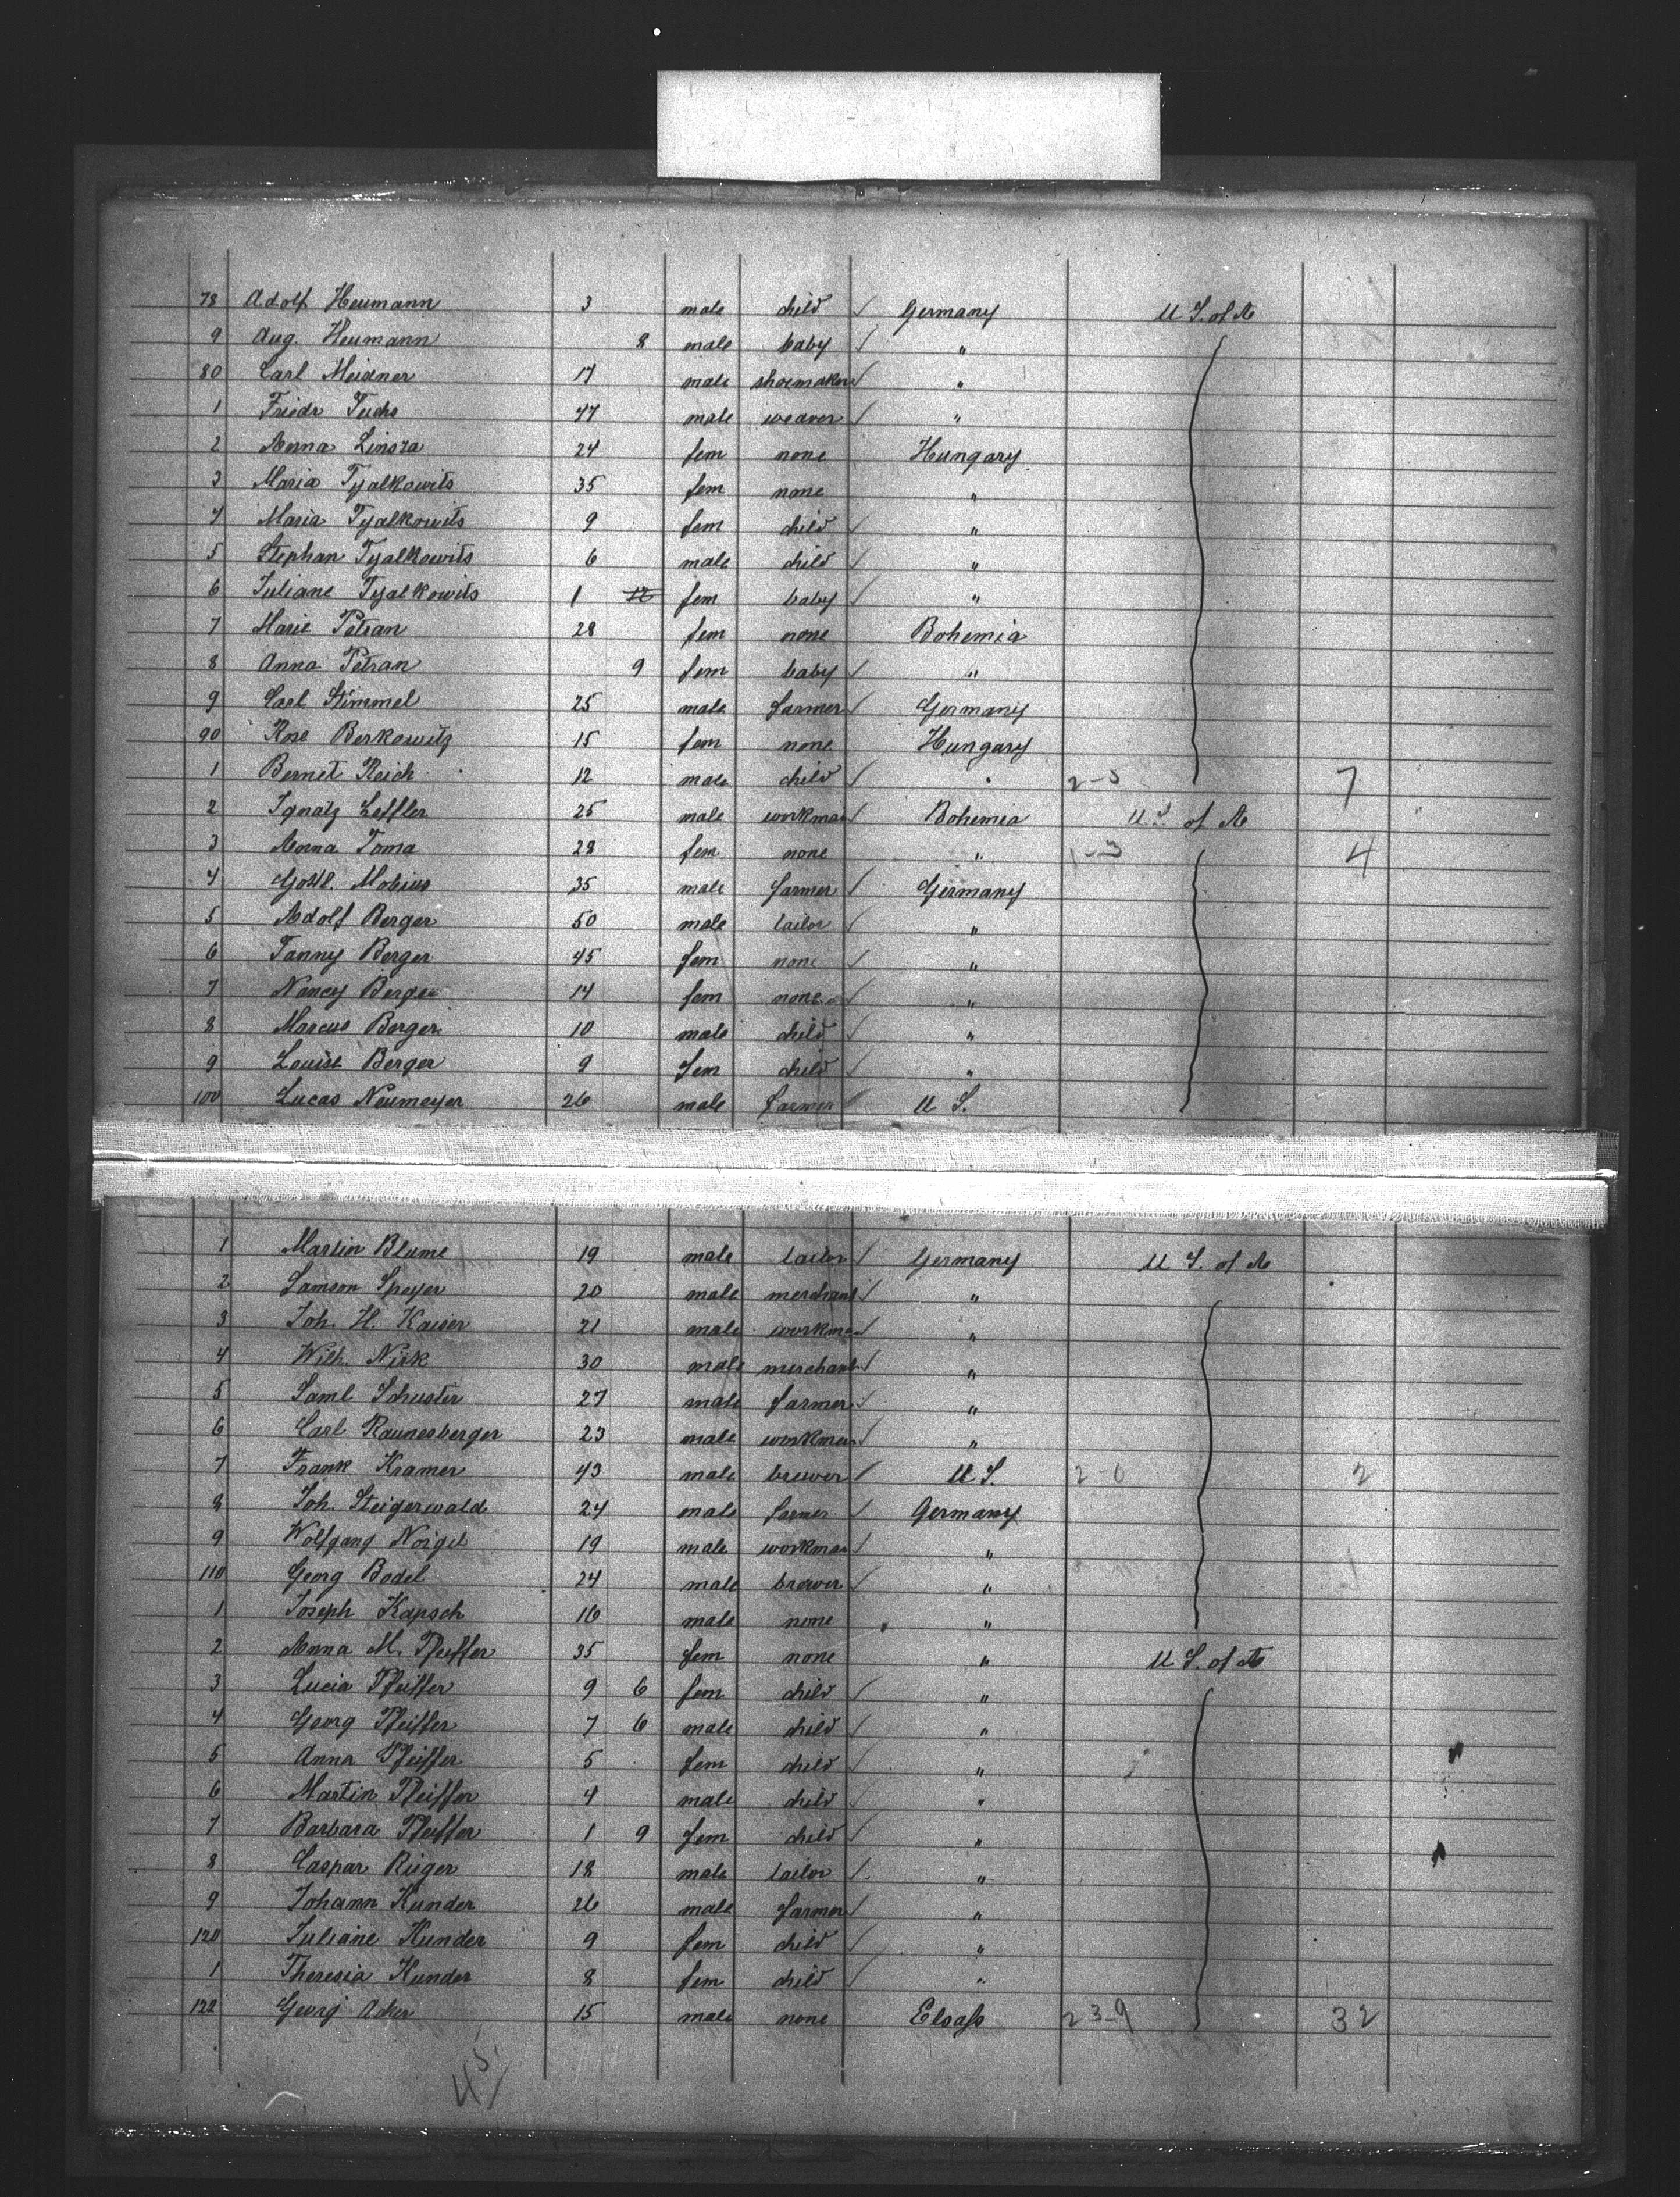 78 Adolf Heumann 3 male child / Germany U S. of A
9 Aug. Heumann 8 male baby / "
80 Carl Meixner 17 male shoemaker / "
1 Friedr Fuchs 47 male weaver / "
2 Anna Linsza 24 fem none Hungary
3 Maria Tyalkowits 35 fem none "
4 Maria Tyalkowits 9 fem child / "
5 Stephan Tyalkowits 6 male child / "
6 Juliane Tyalkowits 1 12 fem baby / "
7 Marie Petran 28 fem none Bohemia
8 Anna Petran 9 fem baby / "
9 Carl Stimmel 25 male farmer / Germany
90 Rose Berkowitz 15 fem none Hungary
1 Bernet Reich 12 male child / " 7
2 Ignatz Leffler 25 male workman / Bohemia U S. of A
3 Anna Toma 28 fem none " 1-3 4
4 Gottl. Mobius 35 male farmer / Germany
5 Adolf Berger 50 male tailor / "
6 Fanny Berger 45 fem none / "
7 Nancy Berger 14 fem none / "
8 Marcus Berger 10 male child / "
9 Louise Berger 9 fem child / "
100 Lucas Neumeyer 26 male farmer / U S.
1 Martin Blume 19 male tailor / Germany U S. of A
2 Samson Speyer 20 male merchant / "
3 Joh. H. Kaiser 21 male workman / "
4 Wilh. Nirk 30 male merchant / "
5 Saml Schuster 27 male farmer / "
6 Carl Raunesberger 23 male workman / "
7 Frank Kramer 43 male brewer / U S. 2-0 2
8 Joh. Steigerwald 24 male farmer / Germany
9 Wolfgang Noigel 19 male workman / "
110 Georg Bodel 24 male brewer / "
1 Joseph Kapsch 16 male none "
2 Anna M. Pfeiffer 35 fem none " U S. of A
3 Lucia Pfeiffer 9 6 fem child / "
4 Georg Pfeiffer 7 6 male child / "
5 Anna Pfeiffer 5 fem child / "
6 Martin Pfeiffer 4 male child / "
7 Barbara Pfeiffer 1 9 fem child / "
8 Caspar Rieger 18 male tailor / "
9 Johann Kunder 26 male farmer / "
120 Juliane Kunder 9 fem child / "
1 Theresia Kunder 8 fem child / "
122 Georg Acker 15 male none Elsass 23-9 32